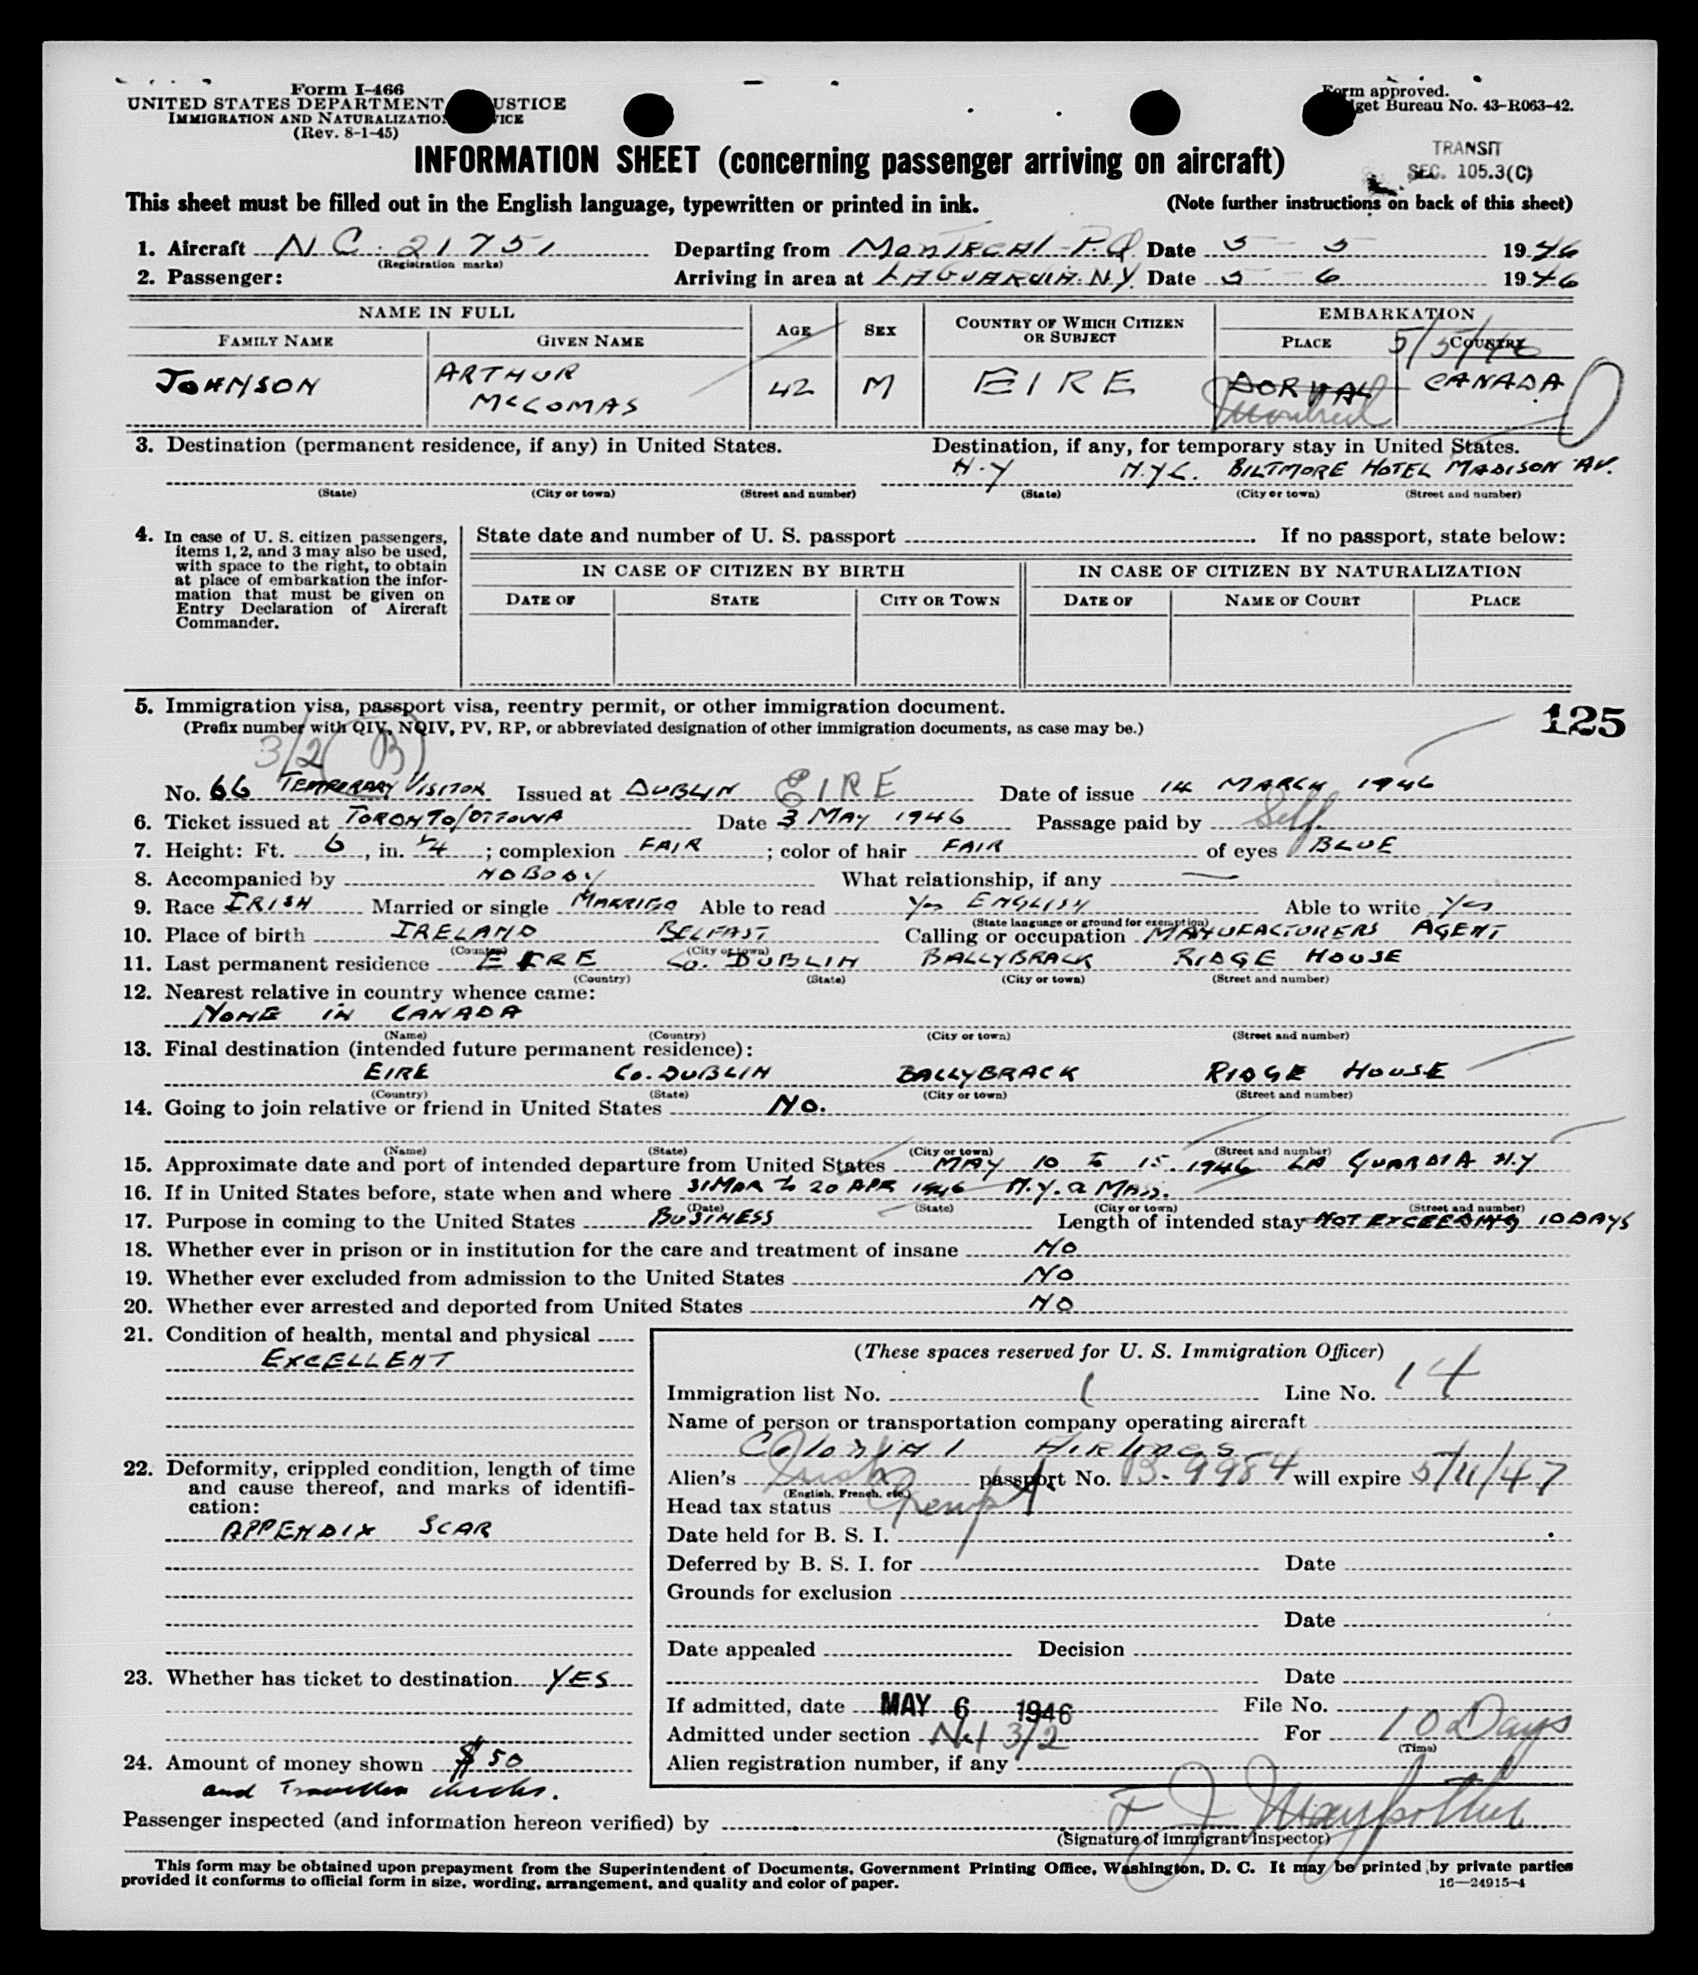 Form I-466
UNITED STATES DEPARTMENT USTICE
IMMIGRATION AND NATURALIZATIO ICE
(Rev. 8-1-45)
Form approved.
get Bureau No. 43-R063-42.
TRANSIT
SEC. 105.3(C)
INFORMATION SHEET (concerning passenger arriving on aircraft)
This sheet must be filled out in the English language, typewritten or printed in ink. (Note further instructions on back of this sheet)
1. Aircraft NC 21751 Departing from MONTREAL P.Q. Date 5 - 5 1946
(Registration marks)
2. Passenger: Arriving in area at LAGUARDIA N.Y. Date 5 - 6 1946
NAME IN FULL AGE SEX COUNTRY OF WHICH CITIZEN OR SUBJECT EMBARKATION
FAMILY NAME GIVEN NAME PLACE COUNTRY
5/5/46
JOHNSON ARTHUR McCOMAS 42 M EIRE DORVAL CANADA
Montreal
3. Destination (permanent residence, if any) in United States. Destination, if any, for temporary stay in United States.
N.Y N.Y.C. BILTMORE HOTEL MADISON AV.
(State) (City or town) (Street and number) (State) (City or town) (Street and number)
4. In case of U. S. citizen passengers, items 1, 2, and 3 may also be used, with space to the right, to obtain at place of embarkation the information that must be given on Entry Declaration of Aircraft Commander.
State date and number of U. S. passport If no passport, state below:
IN CASE OF CITIZEN BY BIRTH IN CASE OF CITIZEN BY NATURALIZATION
DATE OF STATE CITY OR TOWN DATE OF NAME OF COURT PLACE
5. Immigration visa, passport visa, reentry permit, or other immigration document.
(Prefix number with QIV, NQIV, PV, RP, or abbreviated designation of other immigration documents, as case may be.)
125
3/2 (B)
No. 66 TEMPORARY VISITOR Issued at DUBLIN EIRE Date of issue 14 MARCH 1946
6. Ticket issued at TORONTO/OTTOWA Date 3 MAY 1946 Passage paid by Self
7. Height: Ft. 6, in. 1/4; complexion FAIR; color of hair FAIR of eyes BLUE
8. Accompanied by NOBODY What relationship, if any —
9. Race IRISH Married or single MARRIED Able to read Yes ENGLISH Able to write Yes
(State language or ground for exemption)
10. Place of birth IRELAND BELFAST Calling or occupation MANUFACTURERS AGENT
(Country) (City or town)
11. Last permanent residence EIRE Co. DUBLIN BALLYBRACK RIDGE HOUSE
(Country) (State) (City or town) (Street and number)
12. Nearest relative in country whence came:
NONE IN CANADA
(Name) (Country) (City or town) (Street and number)
13. Final destination (intended future permanent residence):
EIRE Co. DUBLIN BALLYBRACK RIDGE HOUSE
(Country) (State) (City or town) (Street and number)
14. Going to join relative or friend in United States NO.
(Name) (State) (City or town) (Street and number)
15. Approximate date and port of intended departure from United States MAY 10 to 15 1946 LA GUARDIA N.Y
16. If in United States before, state when and where 31 MAR to 20 APR 1946 N.Y. & MASS.
(Date) (State) (City or town) (Street and number)
17. Purpose in coming to the United States BUSINESS Length of intended stay NOT EXCEEDING 10 DAYS
18. Whether ever in prison or in institution for the care and treatment of insane NO
19. Whether ever excluded from admission to the United States NO
20. Whether ever arrested and deported from United States NO
21. Condition of health, mental and physical
EXCELLENT
22. Deformity, crippled condition, length of time and cause thereof, and marks of identification:
APPENDIX SCAR
23. Whether has ticket to destination YES
24. Amount of money shown $50
and Travellers checks.
(These spaces reserved for U. S. Immigration Officer)
Immigration list No. 1 Line No. 14
Name of person or transportation company operating aircraft
Colonial Airlines
Alien's Irish passport No. B-9984 will expire 5/11/47
(English, French, etc.)
Head tax status Exempt
Date held for B. S. I.
Deferred by B. S. I. for Date
Grounds for exclusion
Date
Date appealed Decision
Date
If admitted, date MAY 6 1946 File No.
Admitted under section 3/2 For 10 Days
(Time)
Alien registration number, if any
Passenger inspected (and information hereon verified) by
(Signature of immigrant inspector)
This form may be obtained upon prepayment from the Superintendent of Documents, Government Printing Office, Washington, D. C. It may be printed by private parties
provided it conforms to official form in size, wording, arrangement, and quality and color of paper. 16—24915-4